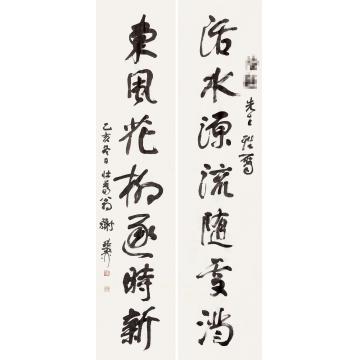 先生雅屬
活水源流随處满
東風花柳逐時新
乙亥冬日壮暮翁謝稚柳